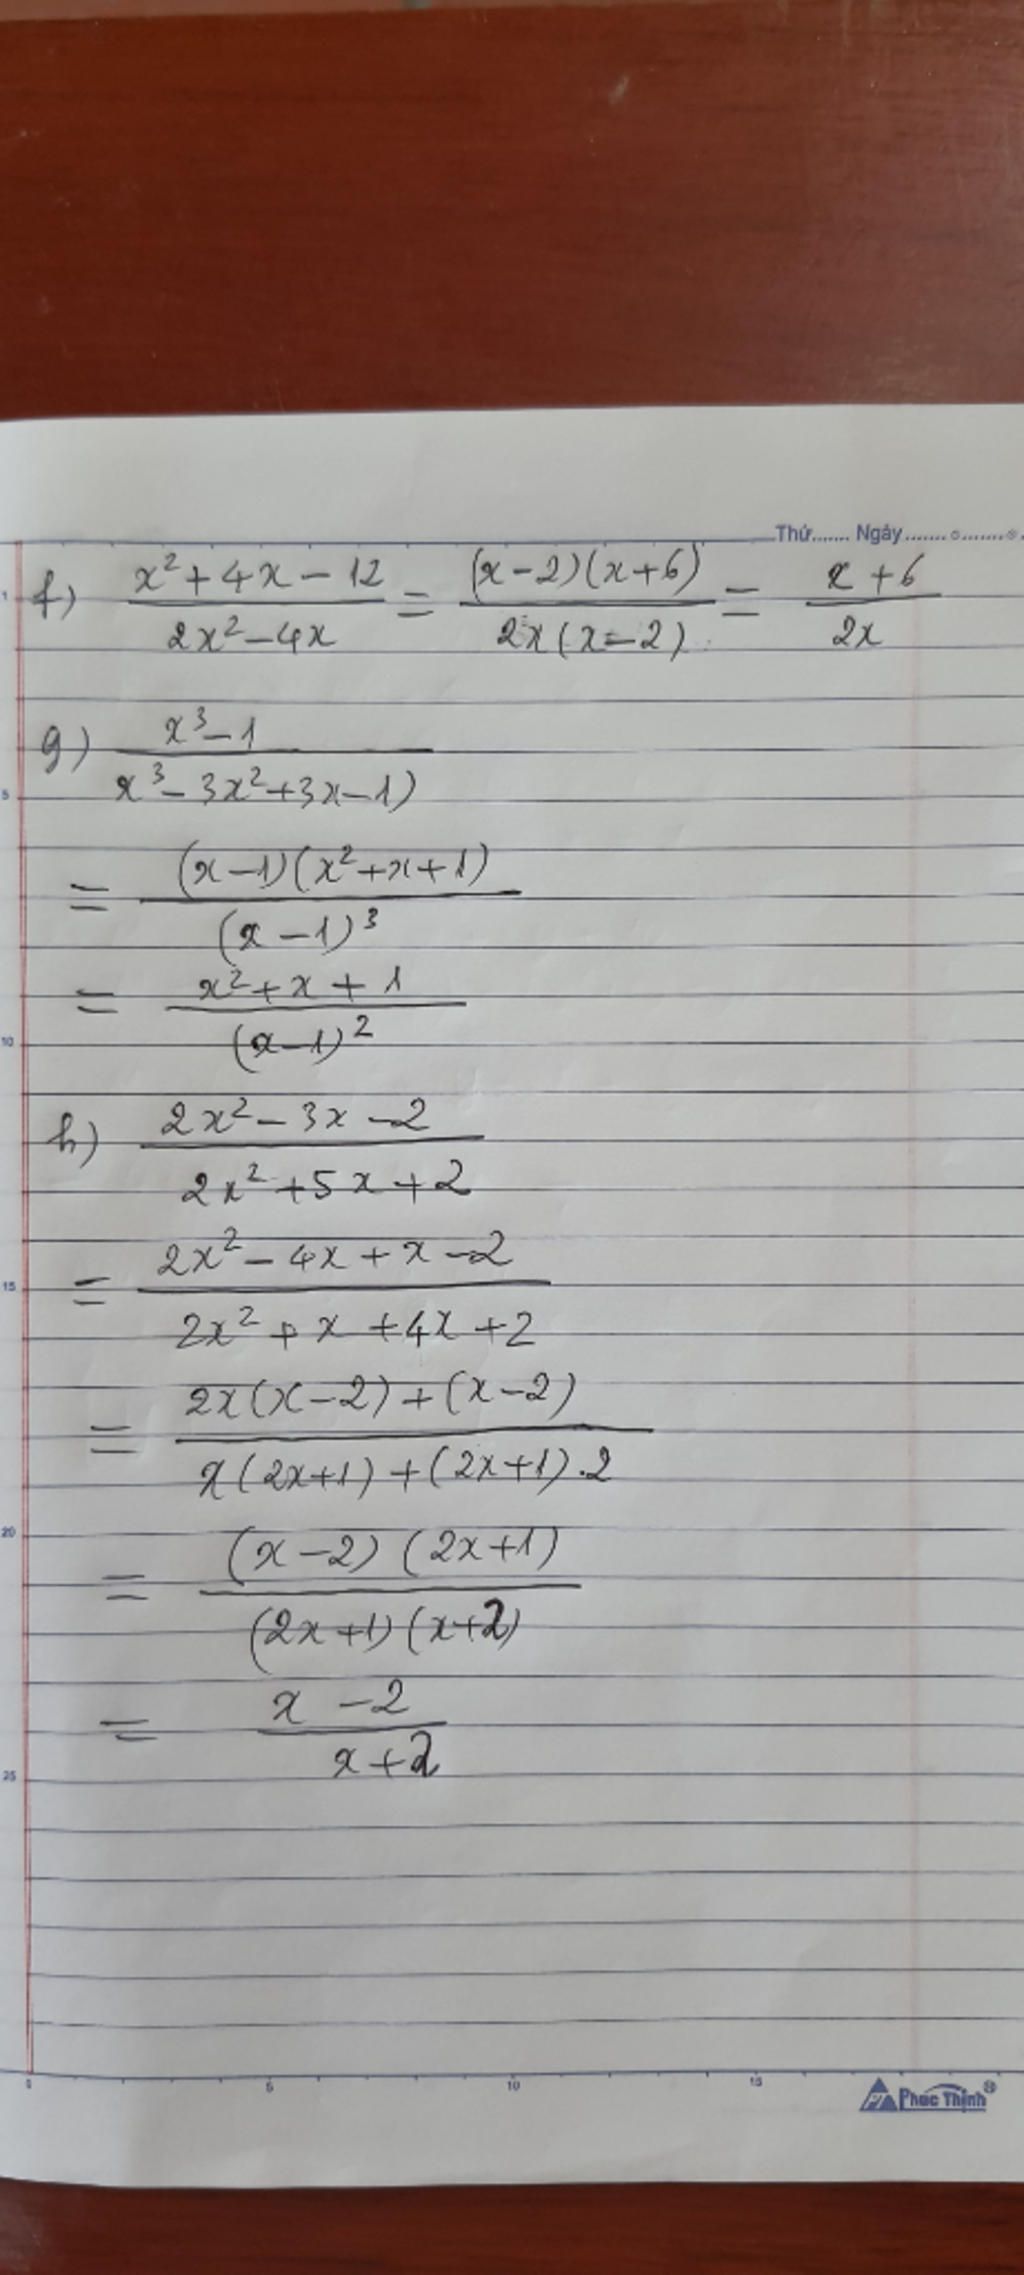 Thứ....... Ngày.......
f) (x² + 4x - 12)/(2x² - 4x) = ((x-2)(x+6))/(2x(x-2)) = (x+6)/(2x)
g) (x³ - 1)/(x³ - 3x² + 3x - 1))
= ((x-1)(x² + x + 1))/((x-1)³)
= (x² + x + 1)/((x-1)²)
h) (2x² - 3x - 2)/(2x² + 5x + 2)
= (2x² - 4x + x - 2)/(2x² + x + 4x + 2)
= (2x(x-2) + (x-2))/(x(2x+1) + (2x+1).2)
= ((x-2)(2x+1))/((2x+1)(x+2))
= (x-2)/(x+2)
1
5
10
15
20
25
0 5 10 15
Phúc Thịnh®